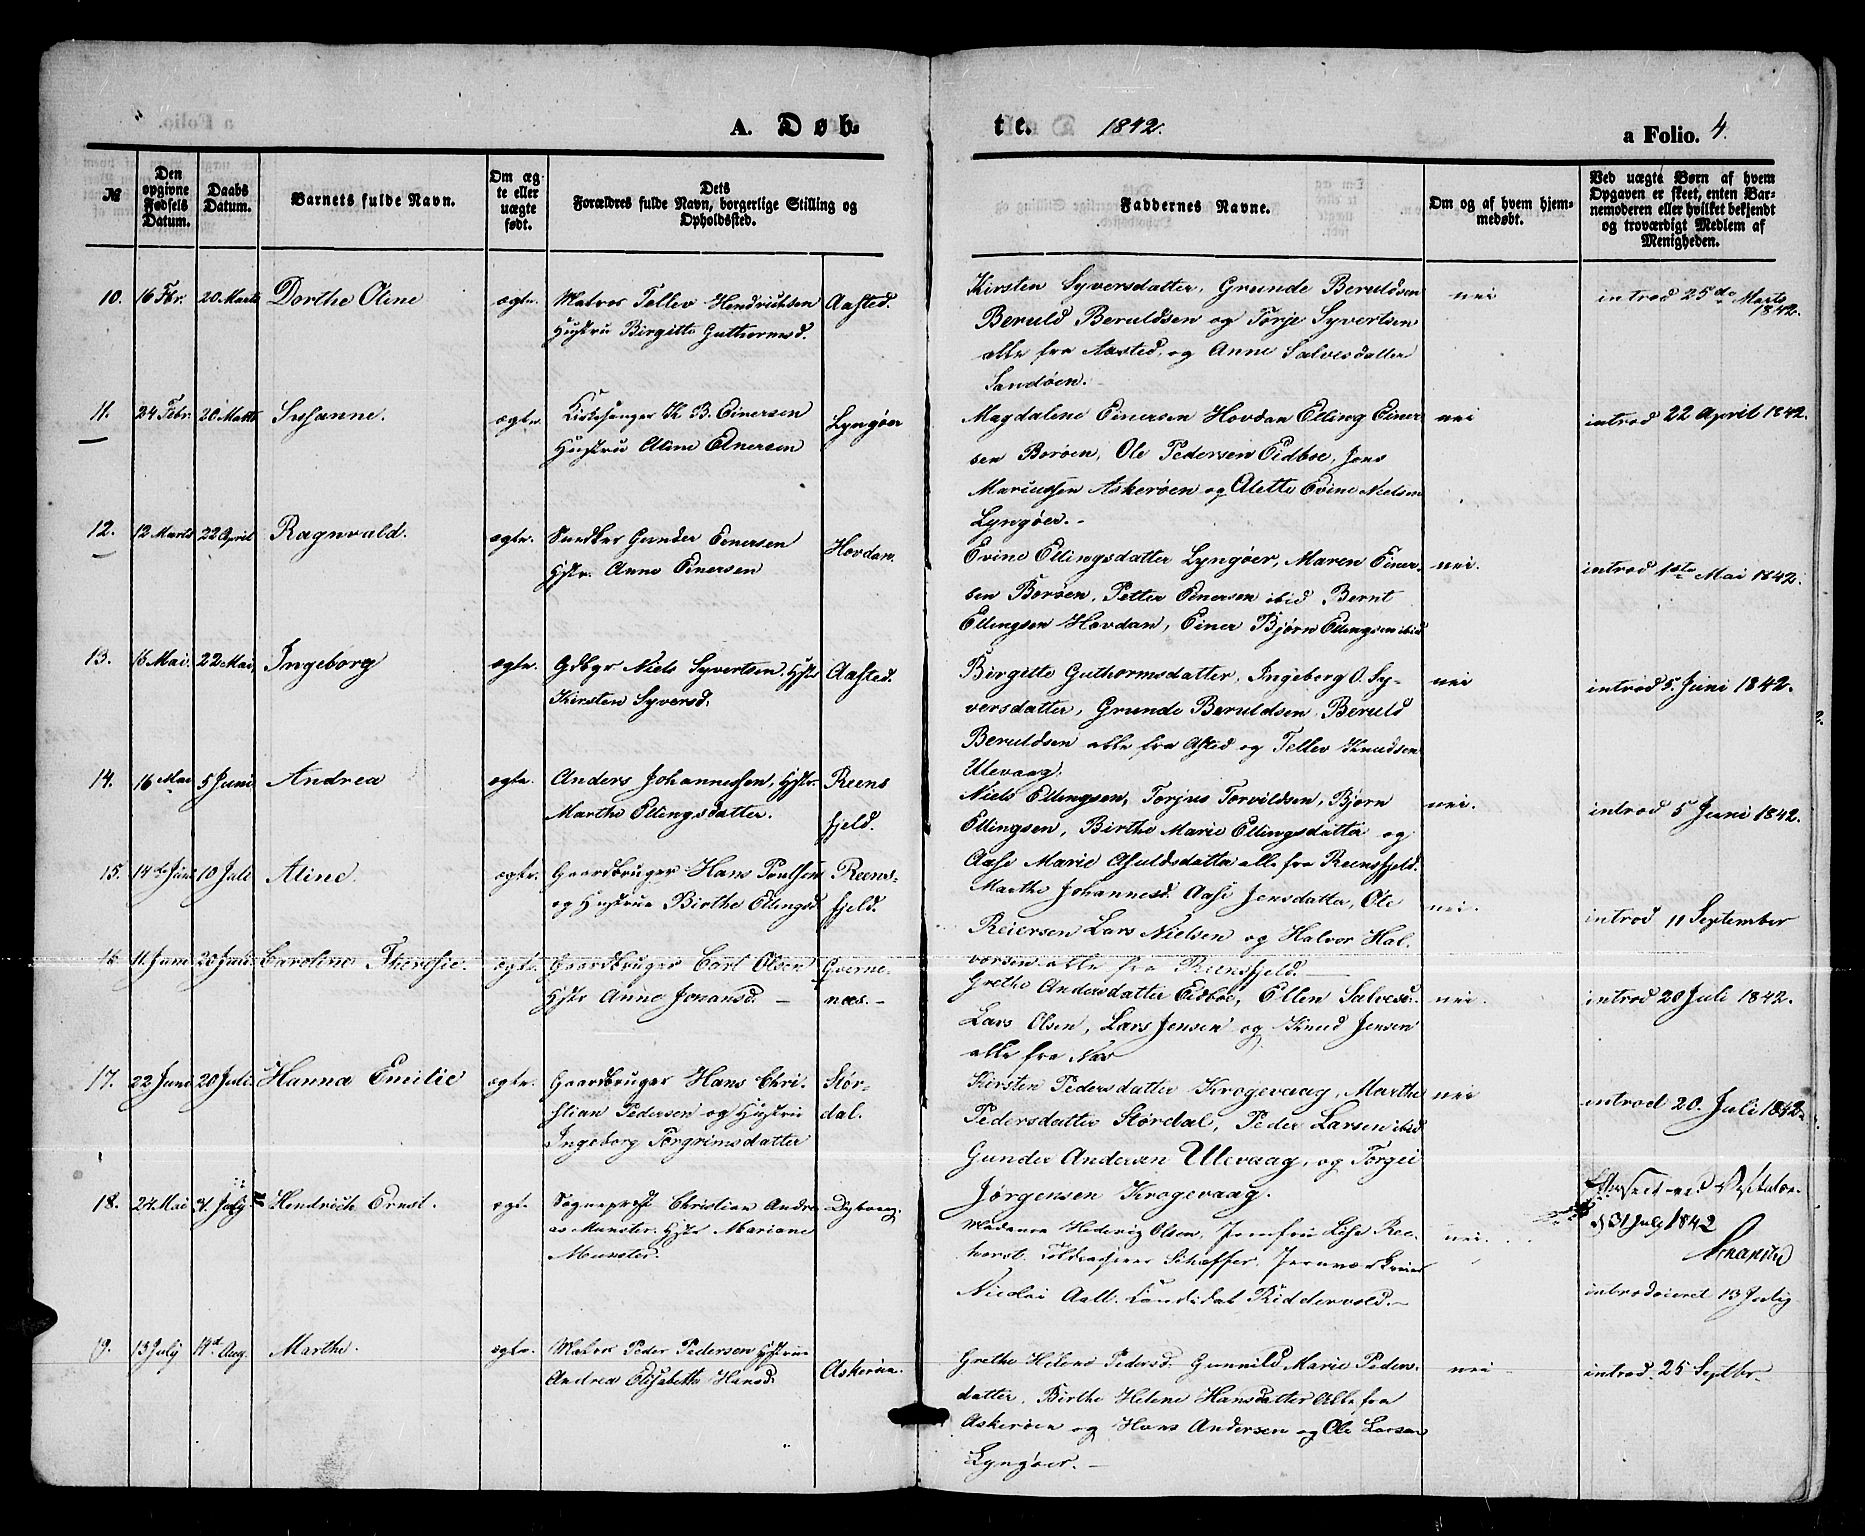 A. Døb-
te. 1842.
a Folio. 4.
№
Den opgivne Fødsels Datum.
Daabs Datum.
Barnets fulde Navn.
Om ægte eller uægte født.
Dets Forældres fulde Navn, borgerlige Stilling og Opholdssted.
Faddernes Navne.
Om og af hvem hjemmedøbt.
Ved uægte Børn af hvem Opgaven er skeet, enten Barnemoderen eller hvilket bekjendt og troværdigt Medlem af Menigheden.
10. 16 Fbr. 20 Marts Dorthe Oline ægte. Matros Tellev Hendrichsen Aasted.
Hustru Birgitte Guthormsd.
Kirsten Syversdatter, Grunde Beruldsen
Beruld Beruldsen og Torje Syvertsen
alle fra Aasted, og Anne Salvesdatter
Sandøen.
nei
introd 25de Marts 1842.
11. 24 Febr. 20 Marts Susanne. ægte. Kirkesanger K. B. Einersen Lyngøer
Hustru Aline Einersen
Magdalene Einersen Hovdan Elling Einer-
sen Borøen, Ole Pedersen Eidboe, Jens
Mariussen Askerøen og Alette Evine Nielsen
Lyngøer.
nei
introd 22 April 1842.
12. 12 Marts 22 April Ragnvald. ægte. Snedker Gunder Einersen Hovdan.
Hstr. Anne Einersen
Evine Ellingsdatter Lyngøer, Maren Einer-
sen Borøen, Petter Einersen ibid Bernt
Ellingsen Hovdan, Einer Bjørn Ellingsen ibid
nei.
introd 1ste Mai 1842.
13. 16 Mai. 22 Mai. Ingeborg ægte. Gdbgr Niels Syvertsen. Hstr Aasted.
Kirsten Syversd.
Birgitte Guthormsdatter, Ingeborg O. Sy-
versdatter, Grunde Beruldsen, Beruld
Beruldsen alle fra Asted og Tellev Knudsen
Ulevaag.
nei
introd 5. Juni 1842.
14. 16 Mai 5 Juni Andrea ægte. Anders Johannessen, Hstr. Reens
Marthe Ellingsdatter. fjeld.
Niels Ellingsen, Torjus Torvildsen, Bjørn
Ellingsen, Birthe Marie Ellingsdatter og
Aase Marie Asuldsdatter alle fra Reensfjeld.
nei.
introd 5 Juni 1842.
15. 14de Juni 10 Juli Aline. ægte. Gaardbruger Hans Poulsen Reens-
og Hustrue Birthe Ellingsd. fjeld.
Marthe Johannesd. Aase Jensdatter, Ole
Reiersen Lars Nielsen og Halvor Hal-
vorsen alle fra Reensfjeld.
nei.
introd 11 September
16 11. Juni 20 Juli. Caroline Theresie. ægte. Gaardbruger Carl Olsen Gverne-
Hstr Anne Jonansd. næs.
Grethe Andersdatter Eidboe, Ellen Salvesd.
Lars Olsen, Lars Jensen og Knud Jensen
alle fra Næs
nei.
introd 20 Juli 1842.
17. 22 Juni 20 Juli. Hanna Emilie ægte. Gaardbruger Hans Chri- Stør-
stian Pedersen og Hustru dal.
Ingeborg Torgrimsdatter
Kirsten Pedersdatter Krogevaag, Marthe
Pedersdatter Størdal, Peder Larsen ibid
Gunder Andersen Ulevaag, og Torgei
Jørgensen Krogevaag.
nei
introd 20. Juli 1842.
18. 24 Mai 31. July Hendrich Ernst. ægt. Sogneprest Christian Andre Dybvaag.
as Munster. Hstr Mariane
Munster.
Madame Hedevig Olsen, Jomfru Lise Ree-
horst. Schæffer. Jernværkseier
Nicolai Aall. Candidat Riddervold.
nei.
31 July 1842
introduceret 13 July
19. 13 July 14d Aug. Marthe. ægte. Matros Peder Pedersen Hstrue Askerøen.
Andrea Elisabeth Hansd.
Grethe Helene Pedersd. Gunnild Marie Peders-
datter, Birthe Helene Hansdatter Alle fra
Askerøen og Hans Andersen og Ole Larsen
Lyngøer.
nei
introd. 25 Septbr.